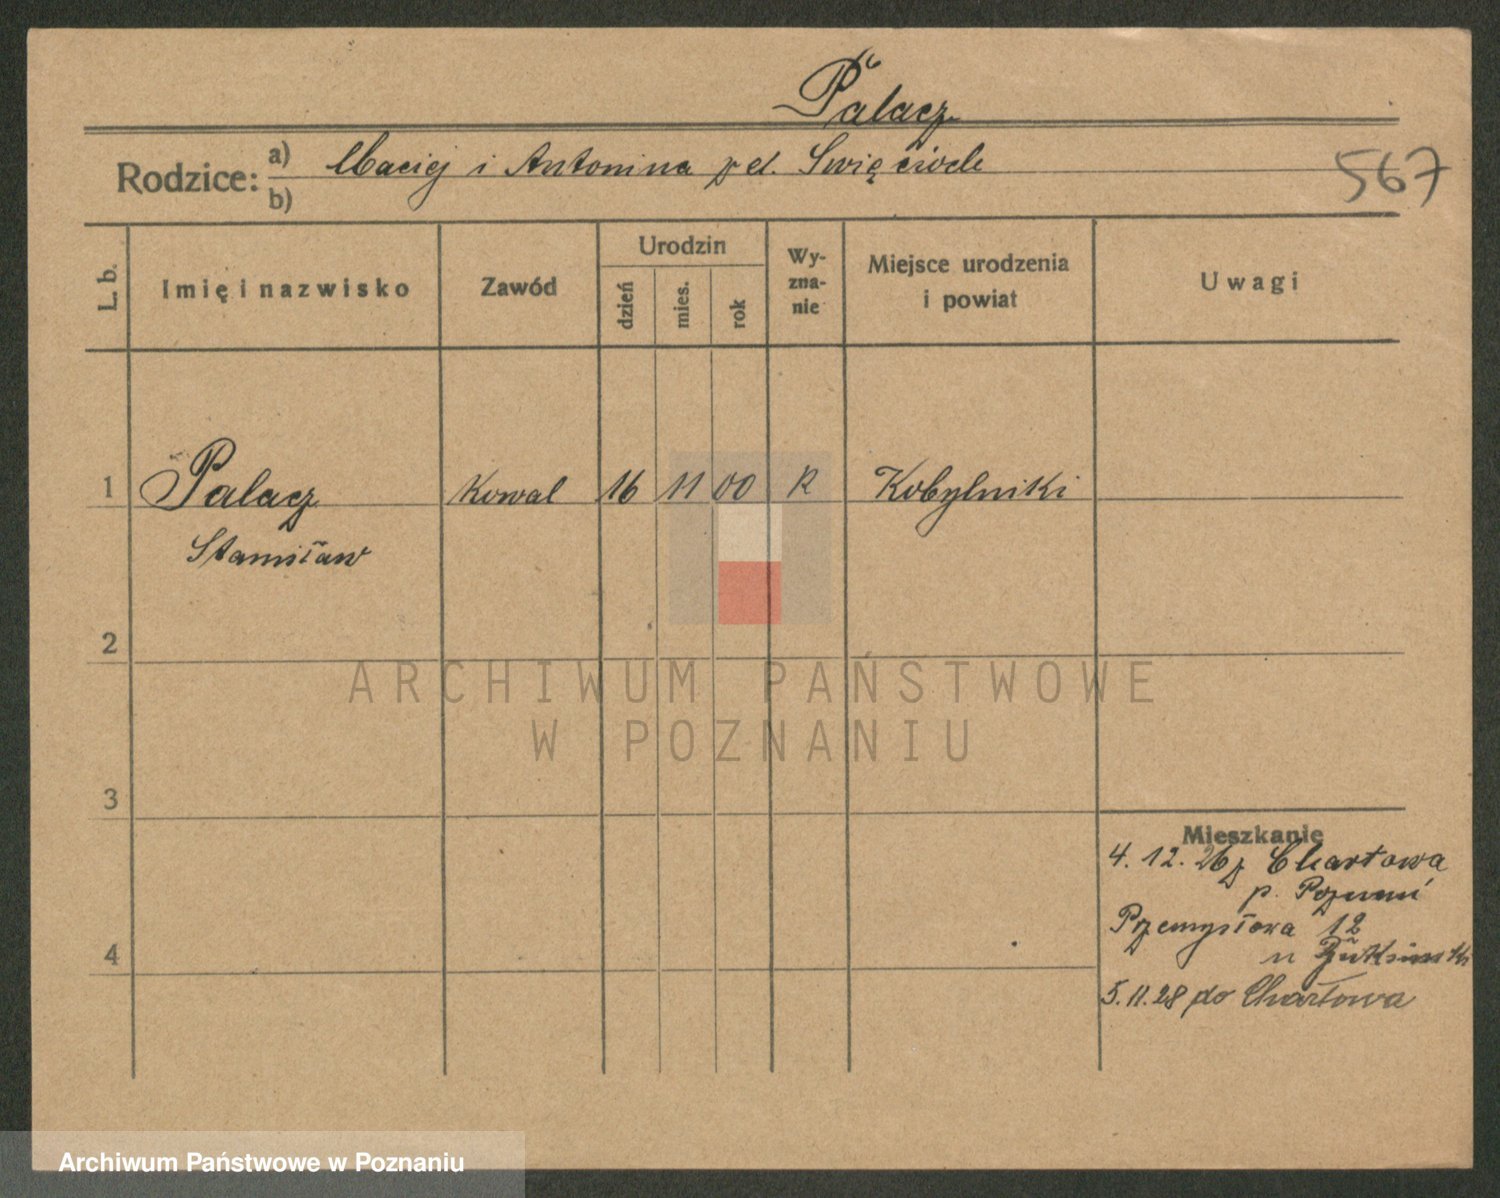 Palacz
Rodzice: a) Maciej i Antonina z d.
b)
567
L. b. Imię i nazwisko Zawód Urodzin dzień mies. rok Wyznanie Miejsce urodzenia i powiat Uwagi
1 Palacz Kowal 16 11 00 R Kobylniki
Stanisław
2
ARCHIWUM PAŃSTWOWE
W POZNANIU
3
Mieszkanie
4. 12. 26 z Chartowa
p. Poznań
Przemysłowa 12
4
u
5.11.28 do Chartowa
Archiwum Państwowe w Poznaniu